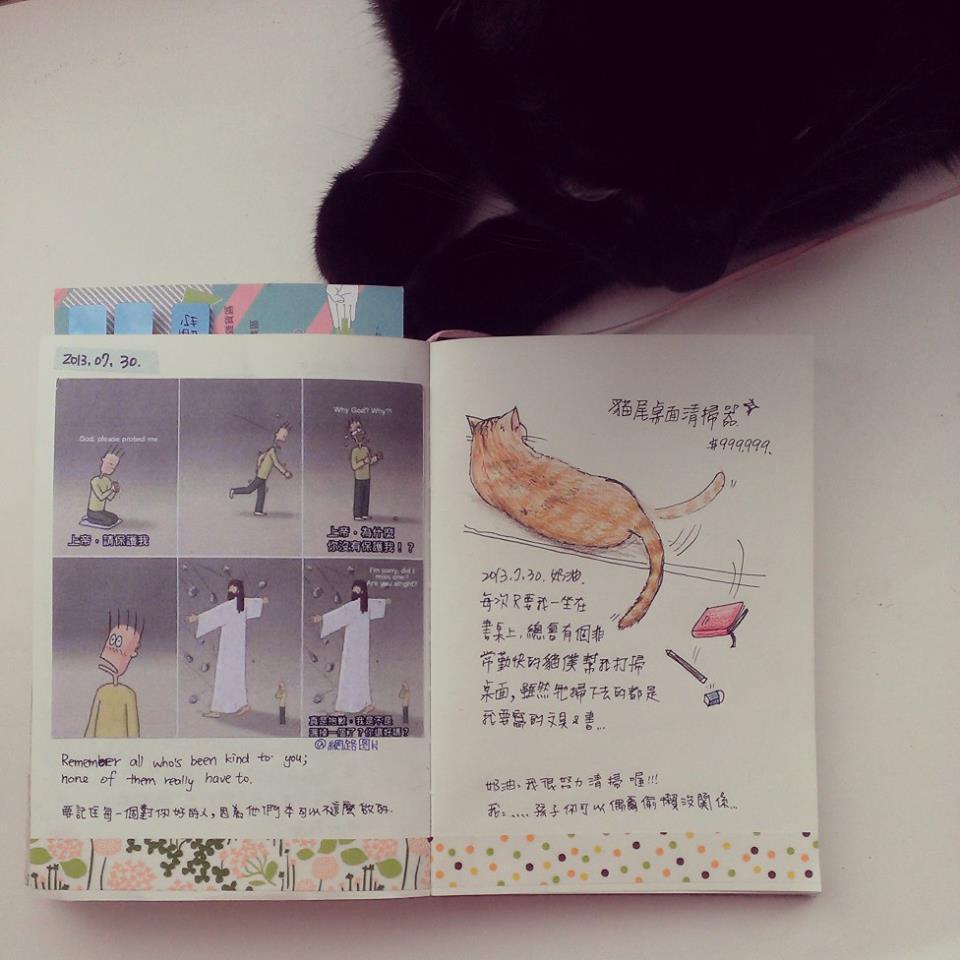 2013.07.30.
God, please protect me
上帝，請保護我
Why God? Why?!
上帝，為什麼
你沒有保護我！？
I'm sorry, did I
miss one?
Are you alright?
真是抱歉，我是不是
漏掉一個了？你還好嗎？
@網路圖片
Remember all who's been kind to you;
none of them really have to.
要記住每一個對你好的人，因為他們本可以不這麼做的.
貓尾桌面清掃器
$999,999.
2013.7.30. 奶油.
每次只要我一坐在
書桌上，總會有個非
常勤快的貓僕幫我打掃
桌面，雖然牠掃下去的都是
我要寫的文具&書...
奶油:我很努力清掃喔!!!
我:.....孩子你可以偶爾偷懶沒關係...